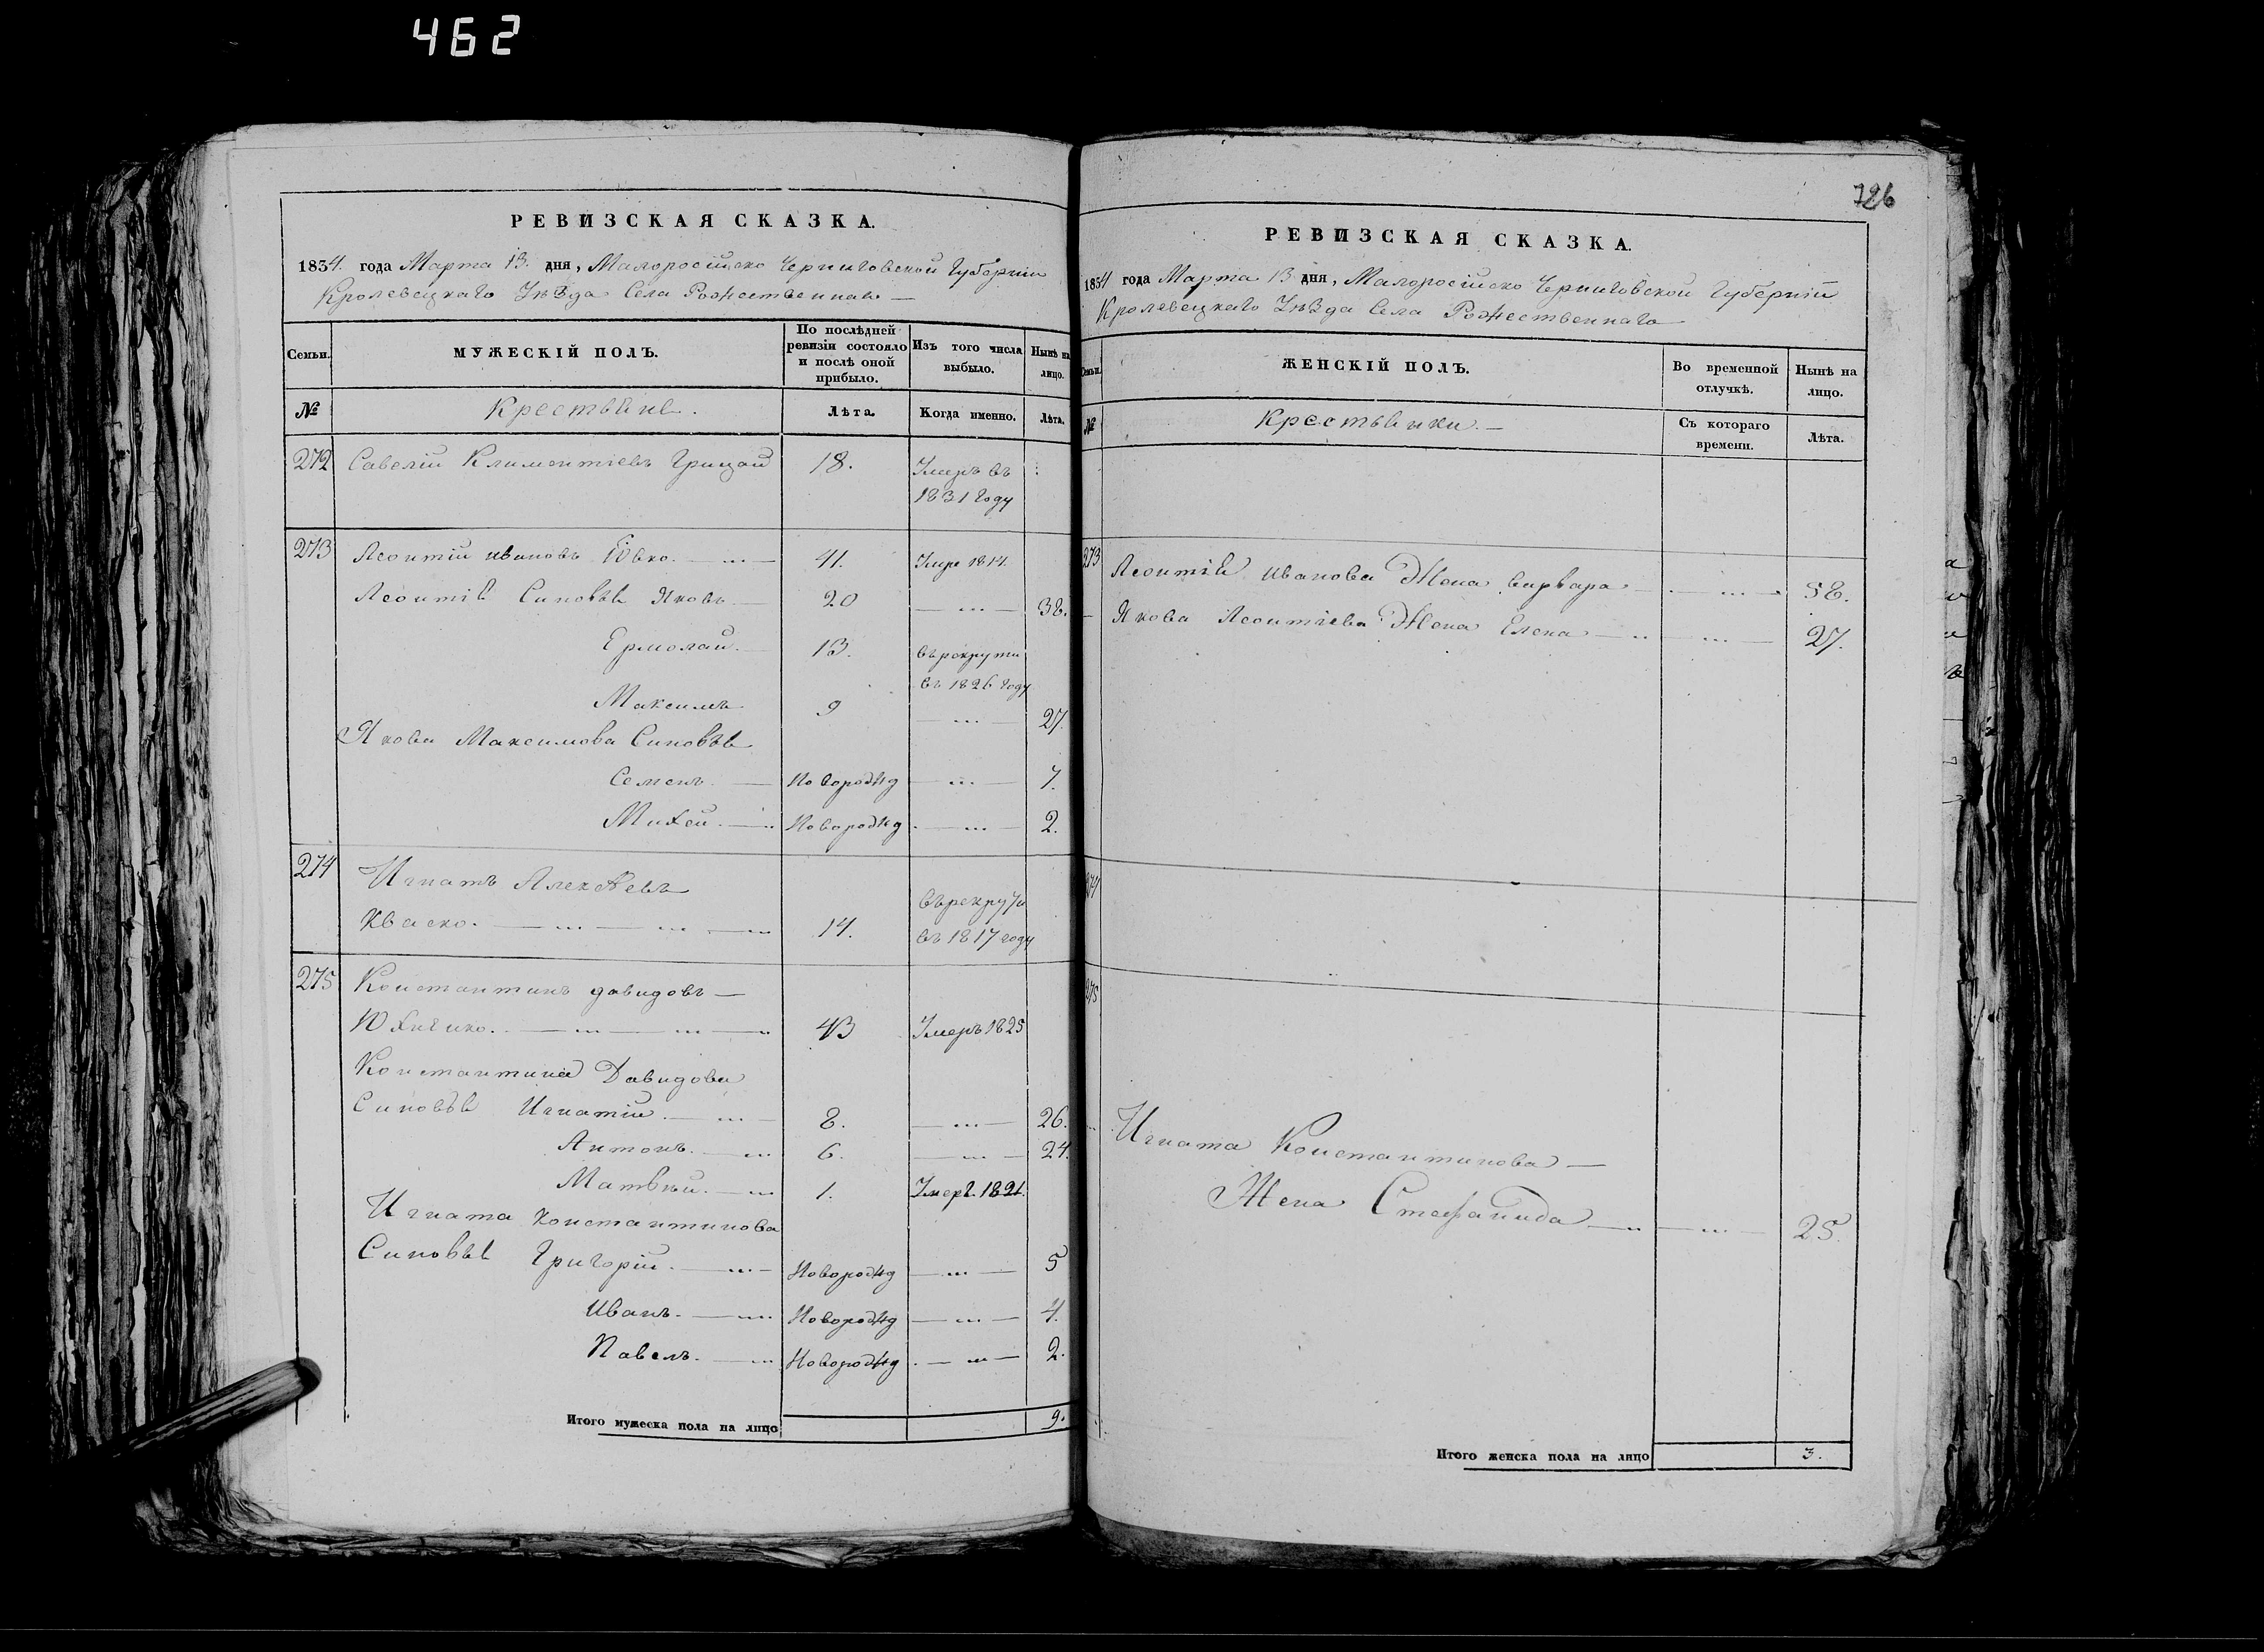 462
РЕВИЗСКАЯ СКАЗКА.
1834. года Марта 13. дня, Малоросійско Черниговской Губерніи
Кролевецкаго Уѣзда Села Рожественнаго —
Семьи.
МУЖЕСКІЙ ПОЛЪ.
По послѣдней ревизіи состояло и послѣ оной прибыло.
Изъ того числа выбыло.
Нынѣ на лицо.
№
Крестьяне.
Лѣта.
Когда именно.
Лѣта.
272 Савелій Климентіевъ Грицай 18. Умеръ въ
1831 году
273 Леонтій Ивановъ 41. Умре 1814.
Леонтія Синовья Яковъ 20 38.
Ермолай. 13. Въ рекрути
въ 1826 году
Максимъ 9 27.
Якова Максимова Синовья
Семенъ. Новорожд 7.
Михей. Новорожд 2.
274 Игнатъ Алексѣевъ Въ рекрути
Кваско. 14. въ 1817 году
275 Константинъ Давидовъ —
Юхнчико. 43 Умеръ 1825
Константина Давидова
Синовья Игнатій. 8. 26.
Антонъ. 6. 24.
Матвѣй. 1. Умеръ. 1821.
Игната Константинова
Синовья Григорій. Новорожд 5
Иванъ. Новорожд 4.
Павелъ. Новорожд 2.
Итого мужеска пола на лицо 9.
726
РЕВИЗСКАЯ СКАЗКА.
1834 года Марта 13 дня, Малоросійско Черниговской Губерніи
Кролевецкаго Уѣзда Села Рожественнаго
Семьи.
ЖЕНСКІЙ ПОЛЪ.
Во временной отлучкѣ.
Нынѣ на лицо.
№
Крестьянки. —
Съ котораго времени.
Лѣта.
273 Леонтія Иванова Жена Варвара 58.
Якова Леонтіева Жена Елена 27.
274
275
Игната Константинова —
Жена Стефанида 25.
Итого женска пола на лицо 3.